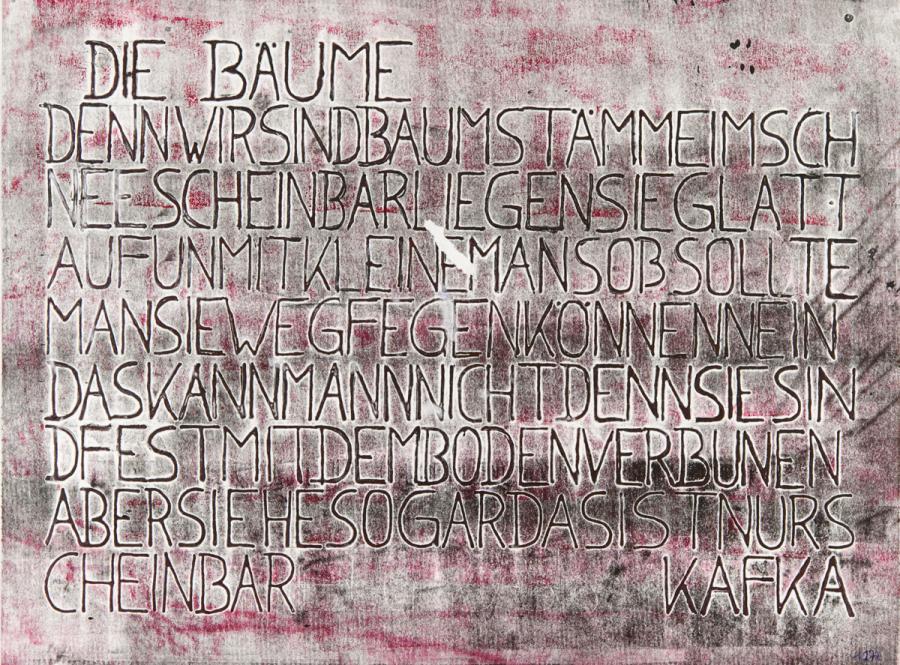 DIE BÄUME
DENNWIRSINDBAUMSTÄMMEIMSCH
NEESCHEINBARLIEGENSIEGLATT
AUFUNMITKLEINEMANSOßSOLLTE
MANSIEWEGFEGENKÖNNENNEIN
DASKANNMANNNICHTDENNSIESIN
DFESTMITDEMBODENVERBUNEN
ABERSIEHESOGARDASISTNURS
CHEINBAR KAFKA